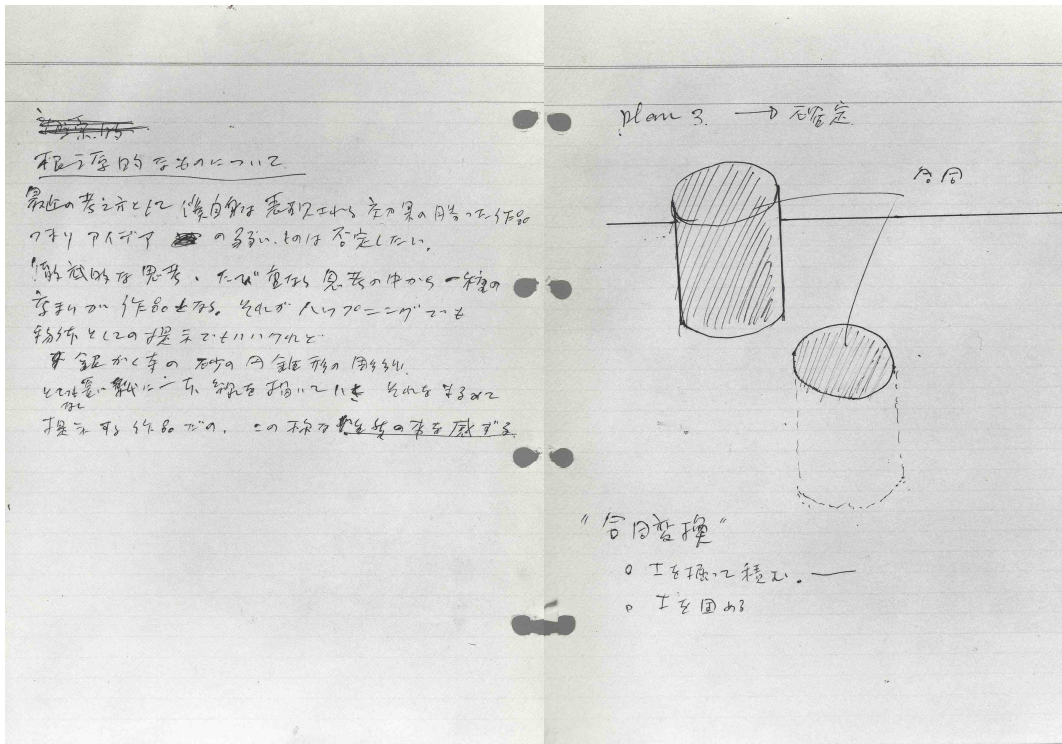 根元学的なものについて
最近の考え方として 僕自身は表現される 効果の勝った作品
つまり アイデア の弱い、ものは否定したい。
徹底的な思考、たび重なる思考の中から 一種の
高まりが 作品となる。それが ハップニングでも
物体としての提示でもいいけれど
の 砂の円錐形の
に一本 線を描いて それをまるめて
提示する作品だの、この様な の を感ずる。
plan 3. → 不確定
合同
"合同変換"
○ 土を掘って積む。—
○ 土を固める